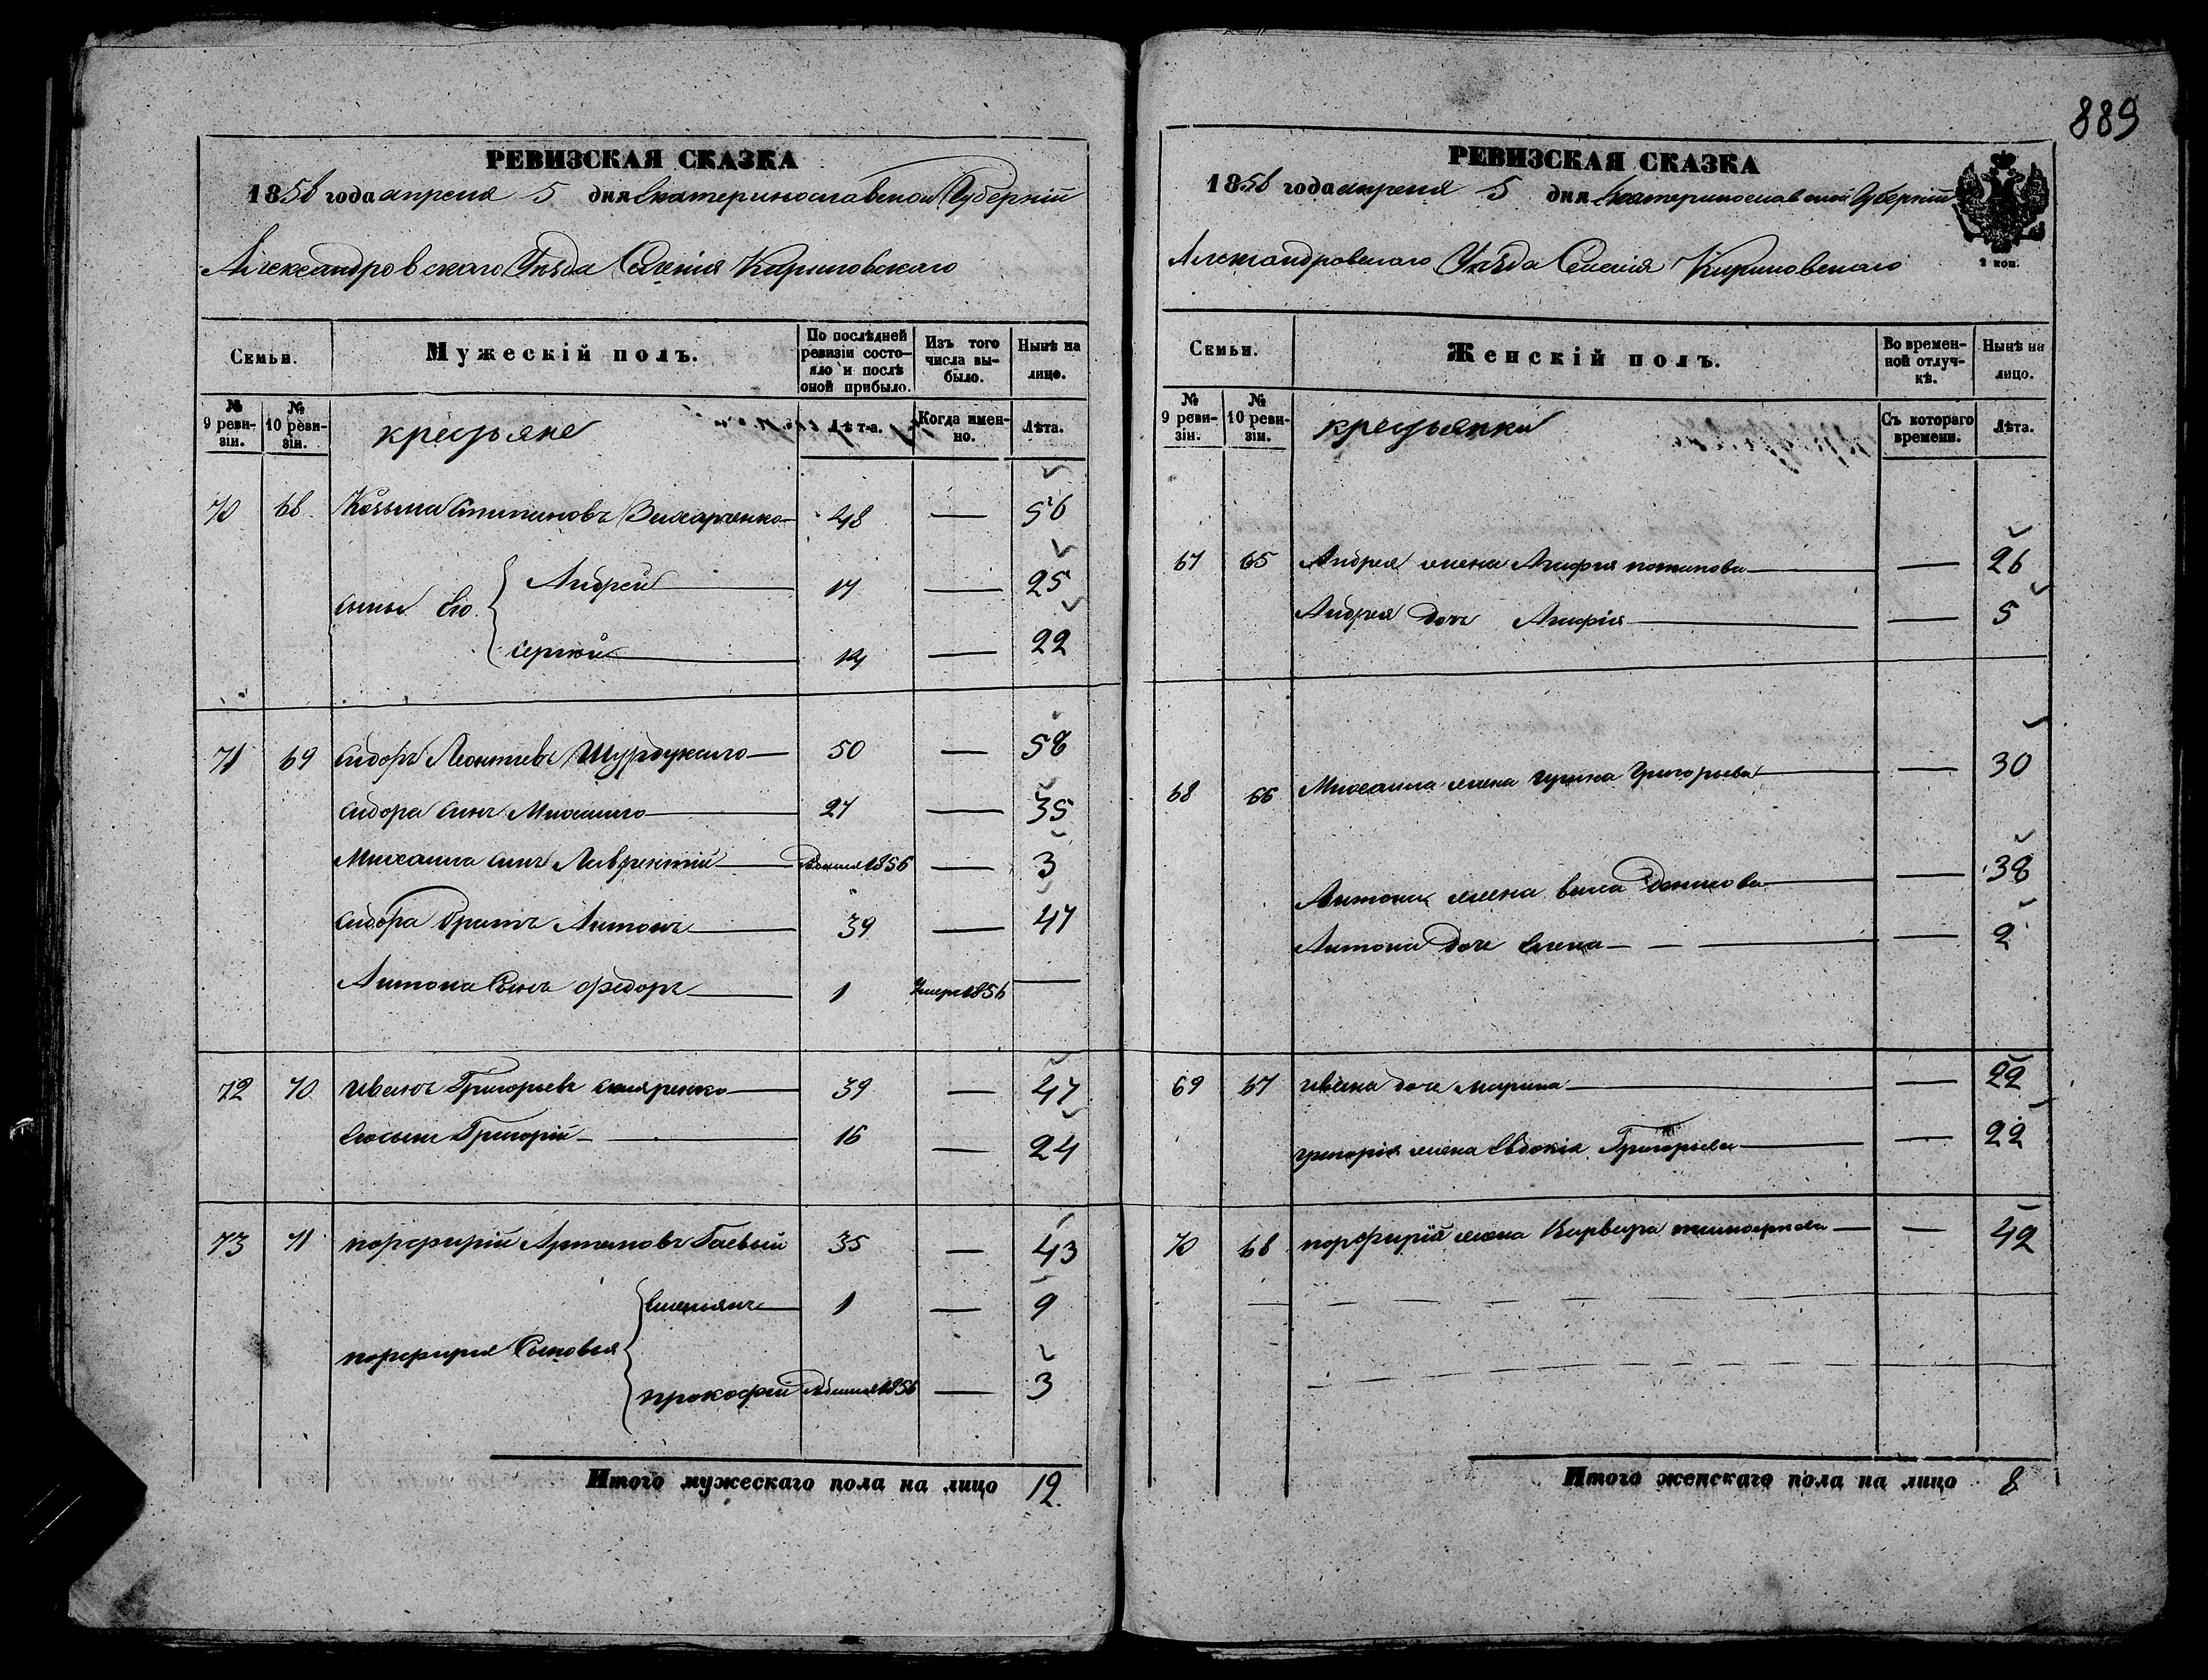 889
РЕВИЗСКАЯ СКАЗКА
1856 года апреля 5 дня Екатеринославской Губерніи
Александровскаго Уѣзда Селенія Кириловскаго
Семьи.
Мужескій полъ.
По послѣдней ревизіи состояло и послѣ оной прибыло.
Изъ того числа выбыло.
Нынѣ на лицо.
№ 9 ревизіи.
№ 10 ревизіи.
крестьяне
Лѣта.
Когда именно.
Лѣта.
70 68 Козьма 48 — 56
сыны его Андрей 17 — 25
Сергѣй 14 — 22
71 69 Сидоръ Леонтіевъ 50 — 58
Сидора сынъ Михаило 27 — 35
Михаила сынъ Лаврентій 1856 — 3
Сидора братъ Антонъ 39 — 47
Антона Сынъ Федоръ 1 Умеръ 1856 —
72 70 Иванъ Григорьевъ Скляренко 39 — 47
Его сынъ Григорій 16 — 24
73 71 Порфирій Артемовъ Гаевый 35 — 43
Порфирія Сыновья Емельянъ 1 — 9
Прокофій 1856 — 3
Итого мужескаго пола на лицо 12.
РЕВИЗСКАЯ СКАЗКА
1856 года апреля 5 дня Екатеринославской Губерніи
Александровскаго Уѣзда Селенія Кириловскаго
2 коп.
Семьи.
Женскій полъ.
Во временной отлучкѣ.
Нынѣ на лицо.
№ 9 ревизіи.
№ 10 ревизіи.
крестьянки
Съ котораго времени.
Лѣта.
67 65 Андрея жена Агафія — 26
Андрея дочь Агафія — 5
68 66 Михаила жена Григорьева — 30
Антона жена Данилова — 38
Антона дочь Елена — 2
69 67 Ивана дочь Марина — 22
Григорія жена Евдокія Григорьева — 22
70 68 Порфирія жена Варвара — 42
Итого женскаго пола на лицо 8